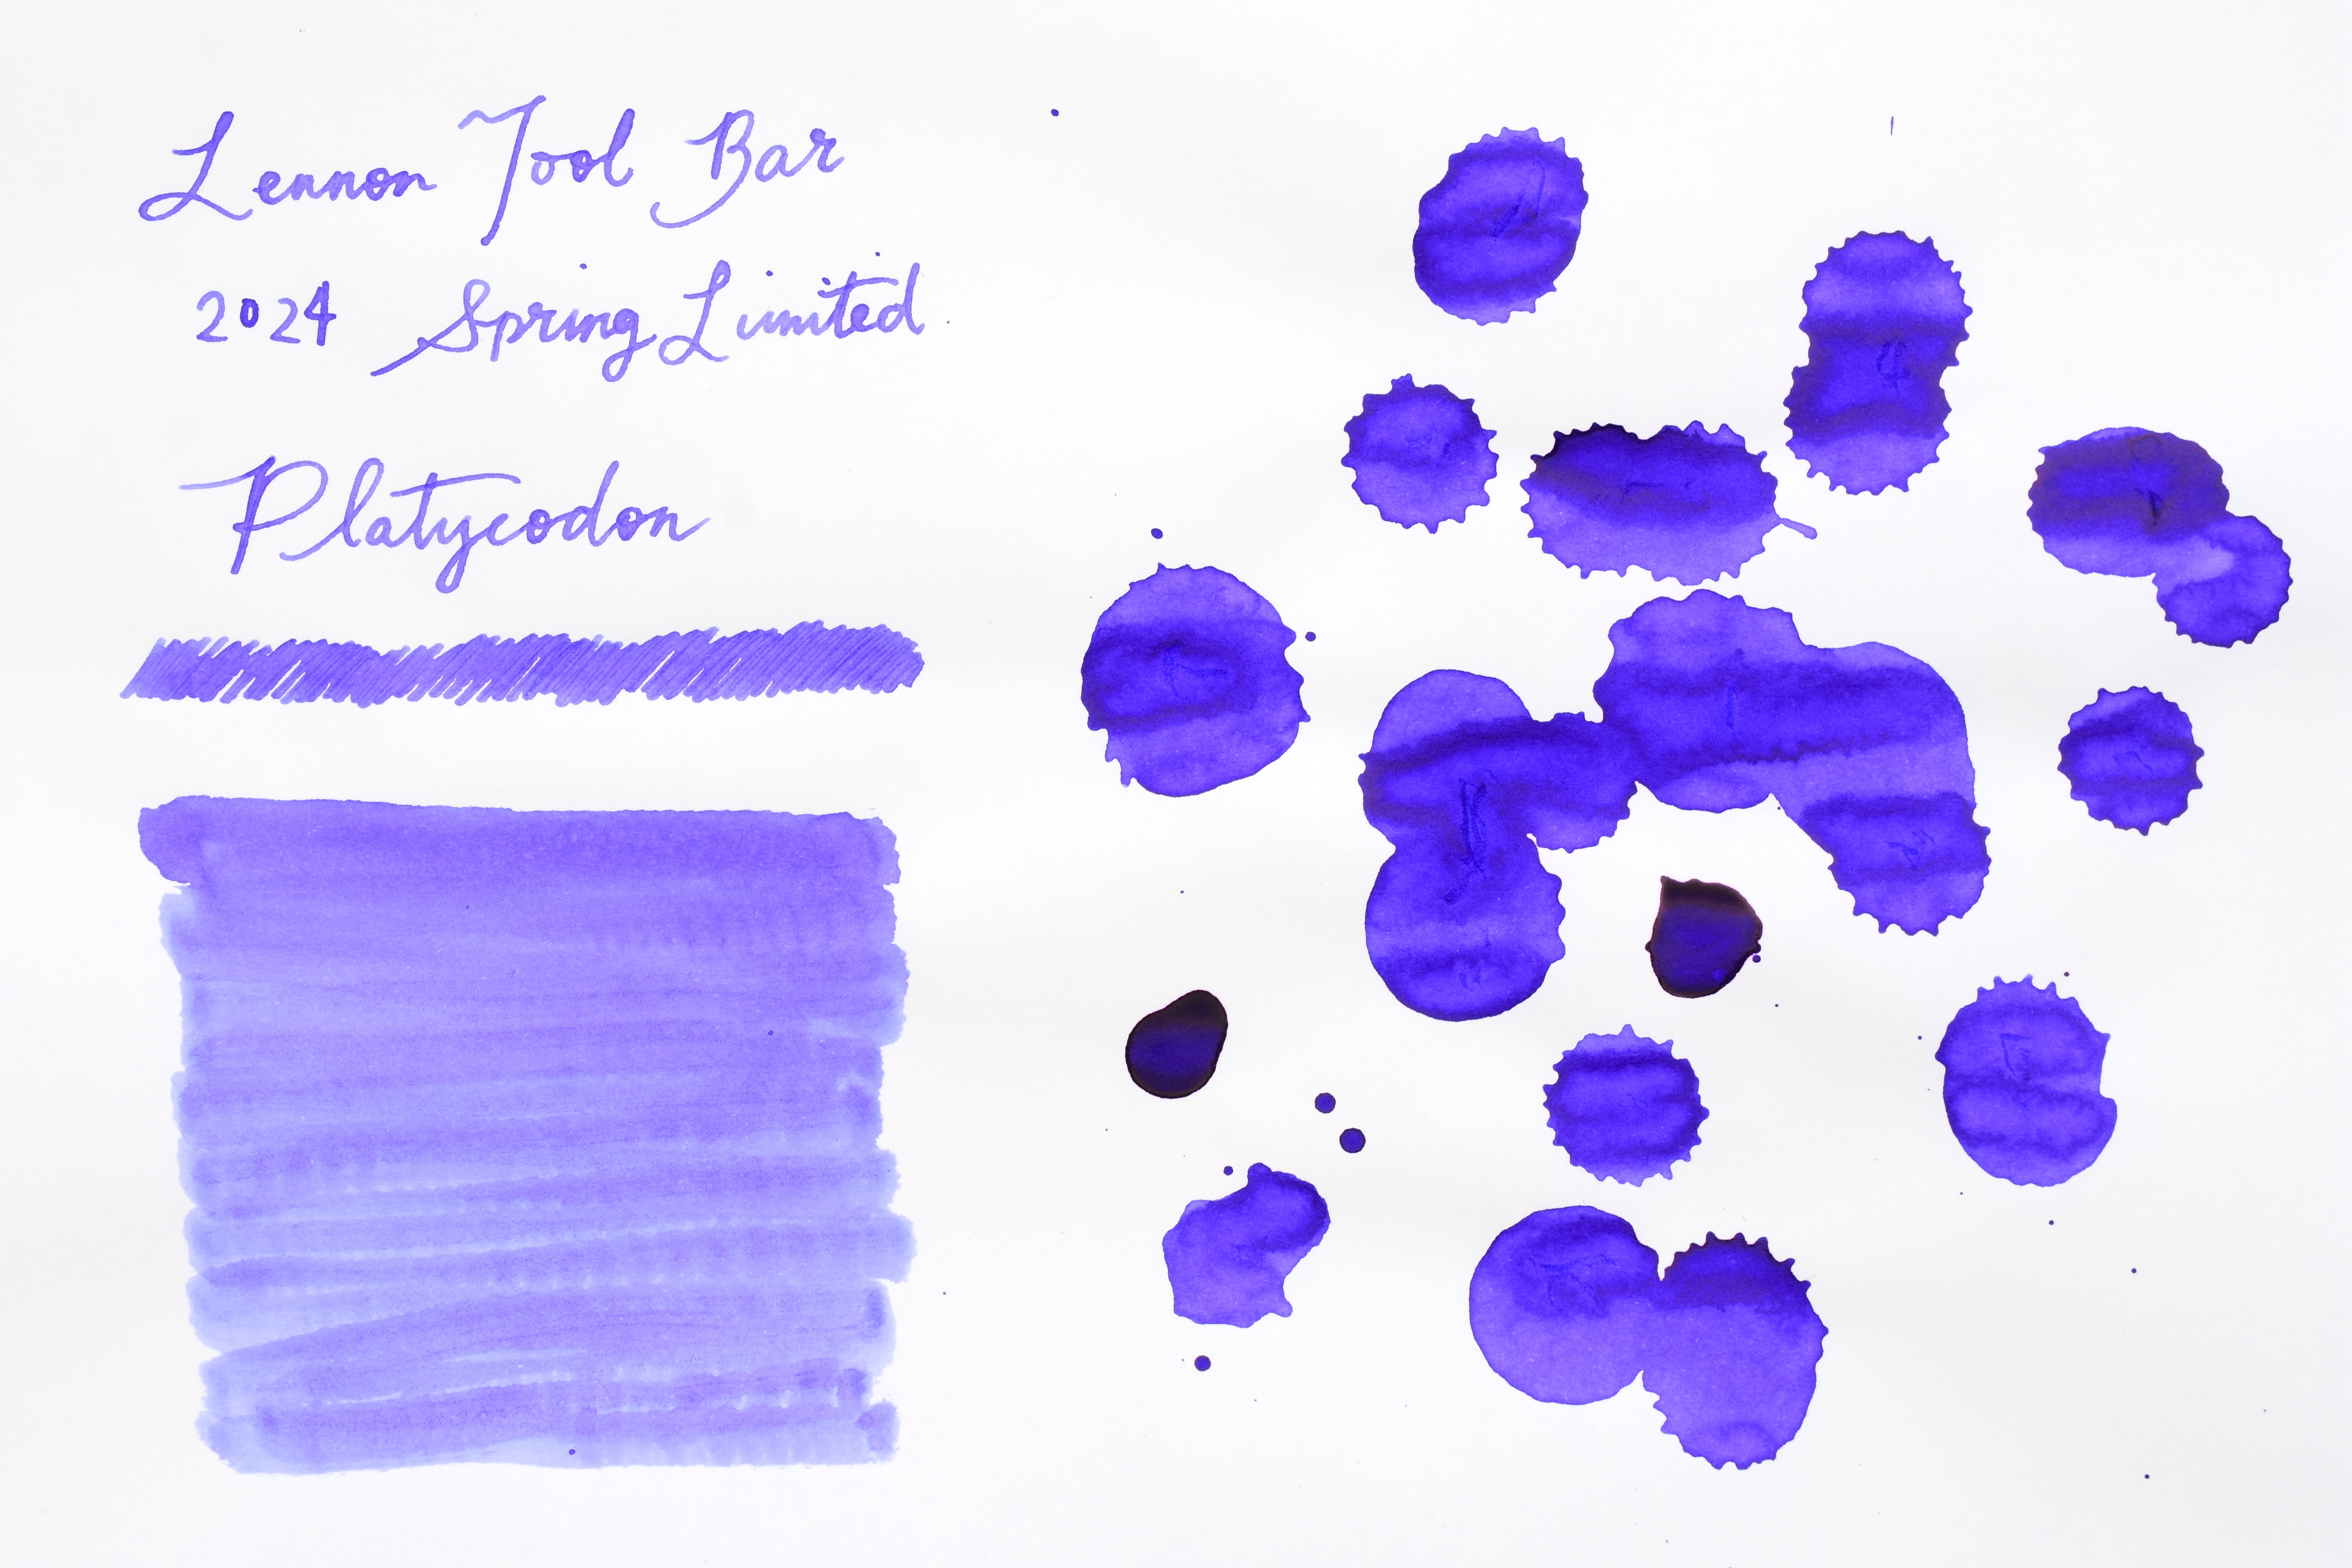 Lennon Tool Bar
2024 Spring Limited
Platycodon